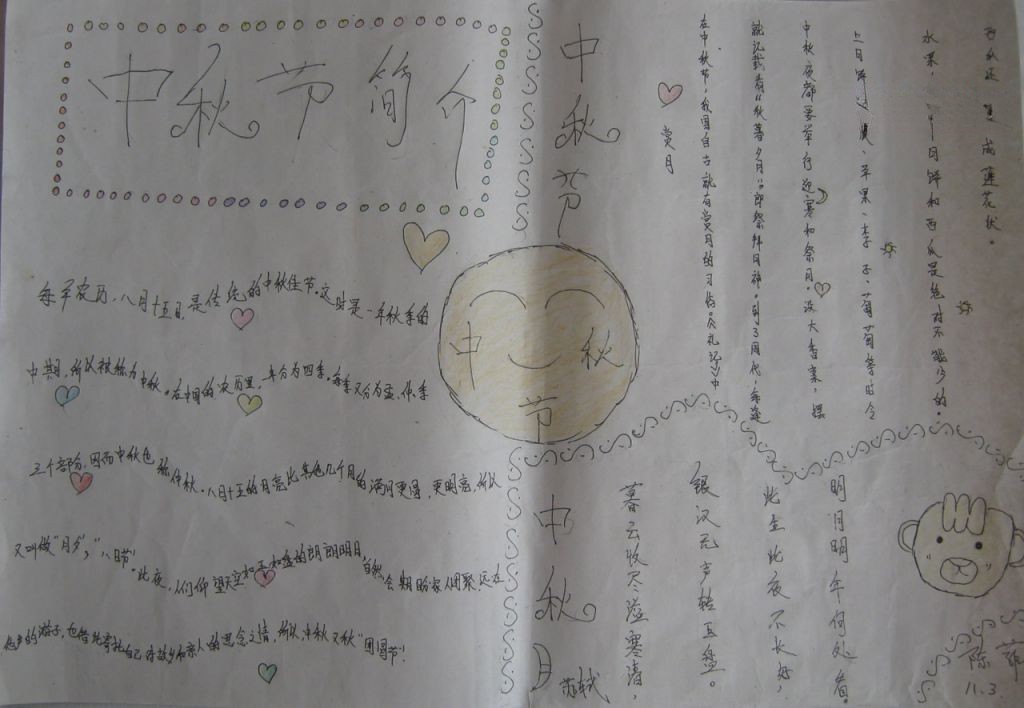 中秋节简介
每年农历八月十五日,是传统的中秋佳节。这时是一年秋季的
中期,所以被称为中秋。在中国的农历里,一年分为四季,每季又分为孟、仲、季
三个部分,因而中秋也称仲秋。八月十五的月亮比其他几个月的满月更圆,更明亮,所以
又叫做“月夕”,“八月节”。此夜,人们仰望天空如玉如盘的朗朗明月,自然会期盼家人团聚,远在
他乡的游子,也借此寄托自己对故乡和亲人的思念之情,所以,中秋又称“团圆节”!
中秋节
中秋节
赏月
在中秋节,我国自古就有赏月的习俗,《礼记》中
就记载有“秋暮夕月”,即祭拜月神。到了周代,每逢
中秋夜都要举行迎寒和祭月。设大香案,摆
上月饼、苹果、李子、葡萄等时令
水果,月饼和西瓜是绝对不能少的。
西瓜还成莲花状。
中秋月
苏轼
暮云收尽溢寒清,
银汉无声转玉盘。
此生此夜不长好,
明月明年何处看。
陈
11.3.